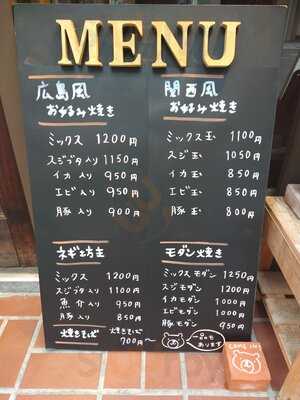 MENU
広島風
お好み焼き
ミックス 1200円
スジブタ入り 1150円
イカ入り 950円
エビ入り 950円
豚入り 900円
関西風
お好み焼き
ミックス玉 1100円
スジ玉 1050円
イカ玉 850円
エビ玉 850円
豚玉 800円
ネギ焼き
ミックス 1200円
スジブタ入り 1100円
魚介入り 950円
豚入り 850円
焼きそば 焼きそば
700円〜
モダン焼き
ミックスモダン 1250円
スジモダン 1200円
イカモダン 1000円
エビモダン 1000円
豚モダン 950円
一品も
あります
COME IN!